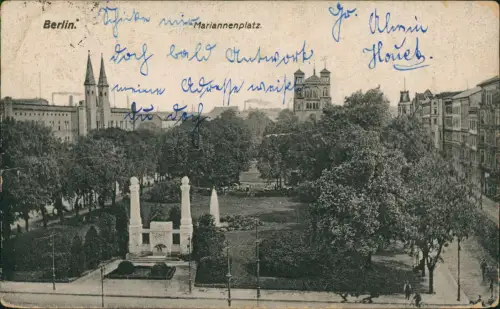 Berlin.
Mariannenplatz.
Schicke mir
doch bald Antwort
meine Adresse weißt
du doch
Gr. Alwin